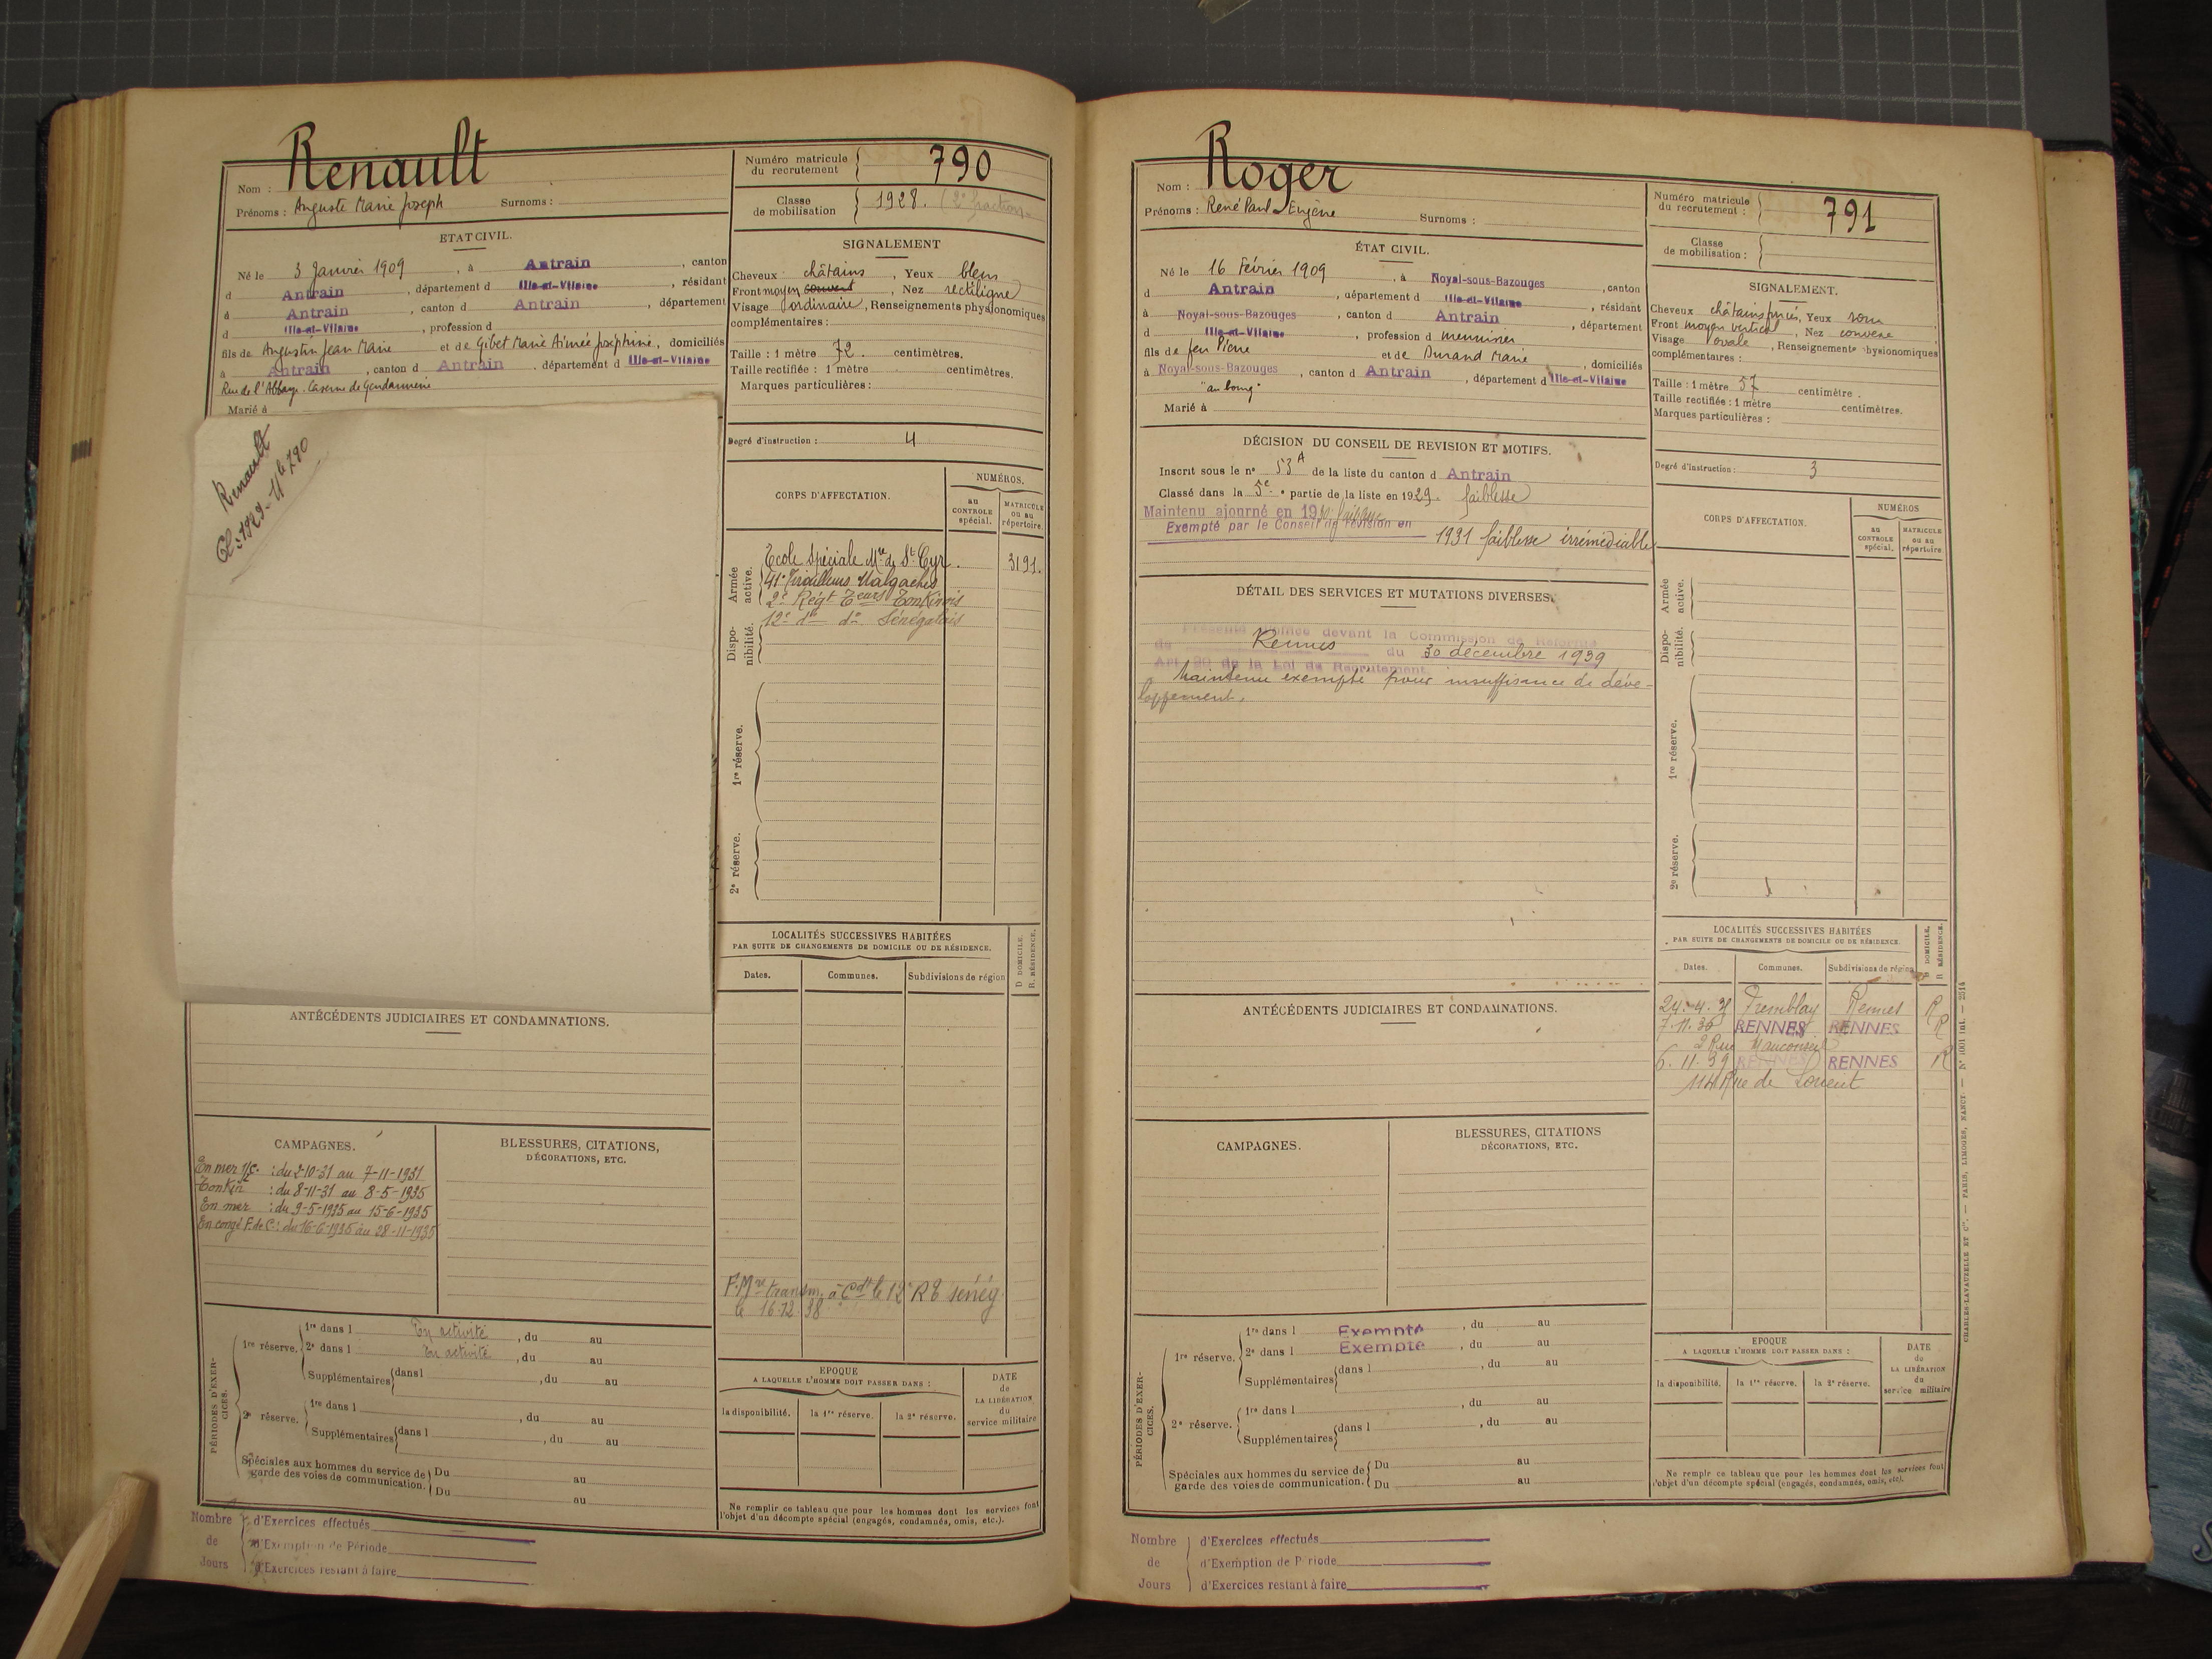 Nom : Renault
Prénoms : Auguste Marie Joseph Surnoms :
Numéro matricule du recrutement 790
Classe de mobilisation 1928. (2e fraction.
ETAT CIVIL.
Né le 3 Janvier 1909, à Antrain, canton
d Antrain, département d Ille-et-Vilaine, résidant
à Antrain, canton d Antrain, département
d Ille-et-Vilaine, profession d
fils de Augustin Jean Marie et de Gibet Marie Aimée Joséphine, domiciliés
à Antrain, canton d Antrain, département d Ille-et-Vilaine
Rue de l'Abbaye. Caserne de Gendarmerie
Marié à
SIGNALEMENT
Cheveux châtains, Yeux bleus
Front moyen convent, Nez rectiligne
Visage ordinaire, Renseignements physionomiques
complémentaires :
Taille : 1 mètre 72 centimètres.
Taille rectifiée : 1 mètre centimètres.
Marques particulières :
Degré d'instruction : 4
Renault
Cl : 1929 - Mle 790
CORPS D'AFFECTATION.
NUMÉROS.
au CONTROLE spécial.
MATRICULE ou au répertoire.
Armée active.
Ecole Spéciale Mre de St Cyr. 3191.
41e Tirailleurs Malgaches
2e Régt Teurs Tonkinois
12e do do Sénégalais
Disponibilité.
1re réserve.
2e réserve.
LOCALITÉS SUCCESSIVES HABITÉES
PAR SUITE DE CHANGEMENTS DE DOMICILE OU DE RÉSIDENCE.
Dates. Communes. Subdivisions de région
D DOMICILE.
R. RÉSIDENCE.
F. Mre transm. à Cdt le 12e R T Sénég.
le 16.12.38
ANTÉCÉDENTS JUDICIAIRES ET CONDAMNATIONS.
CAMPAGNES.
En mer : du 2-10-31 au 7-11-1931
Tonkin : du 8-11-31 au 8-5-1935
En mer : du 9-5-1935 au 15-6-1935
En congé F. de C. : du 16-6-1935 au 28-11-1935
BLESSURES, CITATIONS,
DÉCORATIONS, ETC.
PÉRIODES D'EXERCICES.
1re réserve.
1re dans l En activité, du au
2e dans l En activité, du au
Supplémentaires dans l , du au
2e réserve.
1re dans l , du au
Supplémentaires dans l , du au
Spéciales aux hommes du service de garde des voies de communication.
Du au
Du au
EPOQUE
A LAQUELLE L'HOMME DOIT PASSER DANS :
la disponibilité. la 1re réserve. la 2e réserve.
DATE de LA LIBÉRATION du service militaire
Ne remplir ce tableau que pour les hommes dont les services font
l'objet d'un décompte spécial (engagés, condamnés, omis, etc.).
Nombre de Jours
d'Exercices effectués
d'Exemption de Période
d'Exercices restant à faire
Nom : Roger
Prénoms : René Paul Eugène Surnoms :
Numéro matricule du recrutement : 791
Classe de mobilisation :
ÉTAT CIVIL.
Né le 16 Février 1909, à Noyal-sous-Bazouges, canton
d Antrain, département d Ille-et-Vilaine, résidant
à Noyal-sous-Bazouges, canton d Antrain, département
d Ille-et-Vilaine, profession d menuisier
fils de feu Pierre et de Durand Marie, domiciliés
à Noyal-sous-Bazouges, canton d Antrain, département d Ille-et-Vilaine
"au bourg"
Marié à
SIGNALEMENT.
Cheveux châtains foncés, Yeux roux
Front moyen vertical, Nez convexe
Visage ovale, Renseignements physionomiques
complémentaires :
Taille : 1 mètre 57 centimètre.
Taille rectifiée : 1 mètre centimètres.
Marques particulières :
Degré d'instruction : 3
DÉCISION DU CONSEIL DE REVISION ET MOTIFS.
Inscrit sous le no 53 A de la liste du canton d Antrain
Classé dans la 5e partie de la liste en 1929. faiblesse
Maintenu ajourné en 1930 faiblesse
Exempté par le Conseil de révision en 1931 faiblesse irrémédiable
DÉTAIL DES SERVICES ET MUTATIONS DIVERSES.
Présenté d'office devant la Commission de Réforme
de Rennes du 30 décembre 1939
Art 20 de la Loi de Recrutement
Maintenu exempté pour insuffisance de déve-
loppement.
CORPS D'AFFECTATION.
NUMÉROS
au CONTROLE spécial.
MATRICULE ou au répertoire
Armée active.
Disponibilité.
1re réserve.
2e réserve.
LOCALITÉS SUCCESSIVES HABITÉES
PAR SUITE DE CHANGEMENTS DE DOMICILE OU DE RÉSIDENCE.
Dates. Communes. Subdivisions de région
D DOMICILE.
R RÉSIDENCE.
24.4.31 Tremblay Rennes R
7.11.36 RENNES RENNES R
2 Rue Mauconseil
6.11.39 RENNES RENNES R
114 Rue de Lorient
ANTÉCÉDENTS JUDICIAIRES ET CONDAMNATIONS.
CAMPAGNES.
BLESSURES, CITATIONS
DÉCORATIONS, ETC.
PÉRIODES D'EXERCICES.
1re réserve.
1re dans l Exempté, du au
2e dans l Exempté, du au
Supplémentaires dans l , du au
2e réserve.
1re dans l , du au
Supplémentaires dans l , du au
Spéciales aux hommes du service de garde des voies de communication.
Du au
Du au
EPOQUE
A LAQUELLE L'HOMME DOIT PASSER DANS :
la disponibilité. la 1re réserve. la 2e réserve.
DATE de LA LIBÉRATION du service militaire
Ne remplir ce tableau que pour les hommes dont les services font
l'objet d'un décompte spécial (engagés, condamnés, omis, etc).
CHARLES-LAVAUZELLE ET Cie. — PARIS, LIMOGES, NANCY.
Nombre de Jours
d'Exercices effectués
d'Exemption de Période
d'Exercices restant à faire